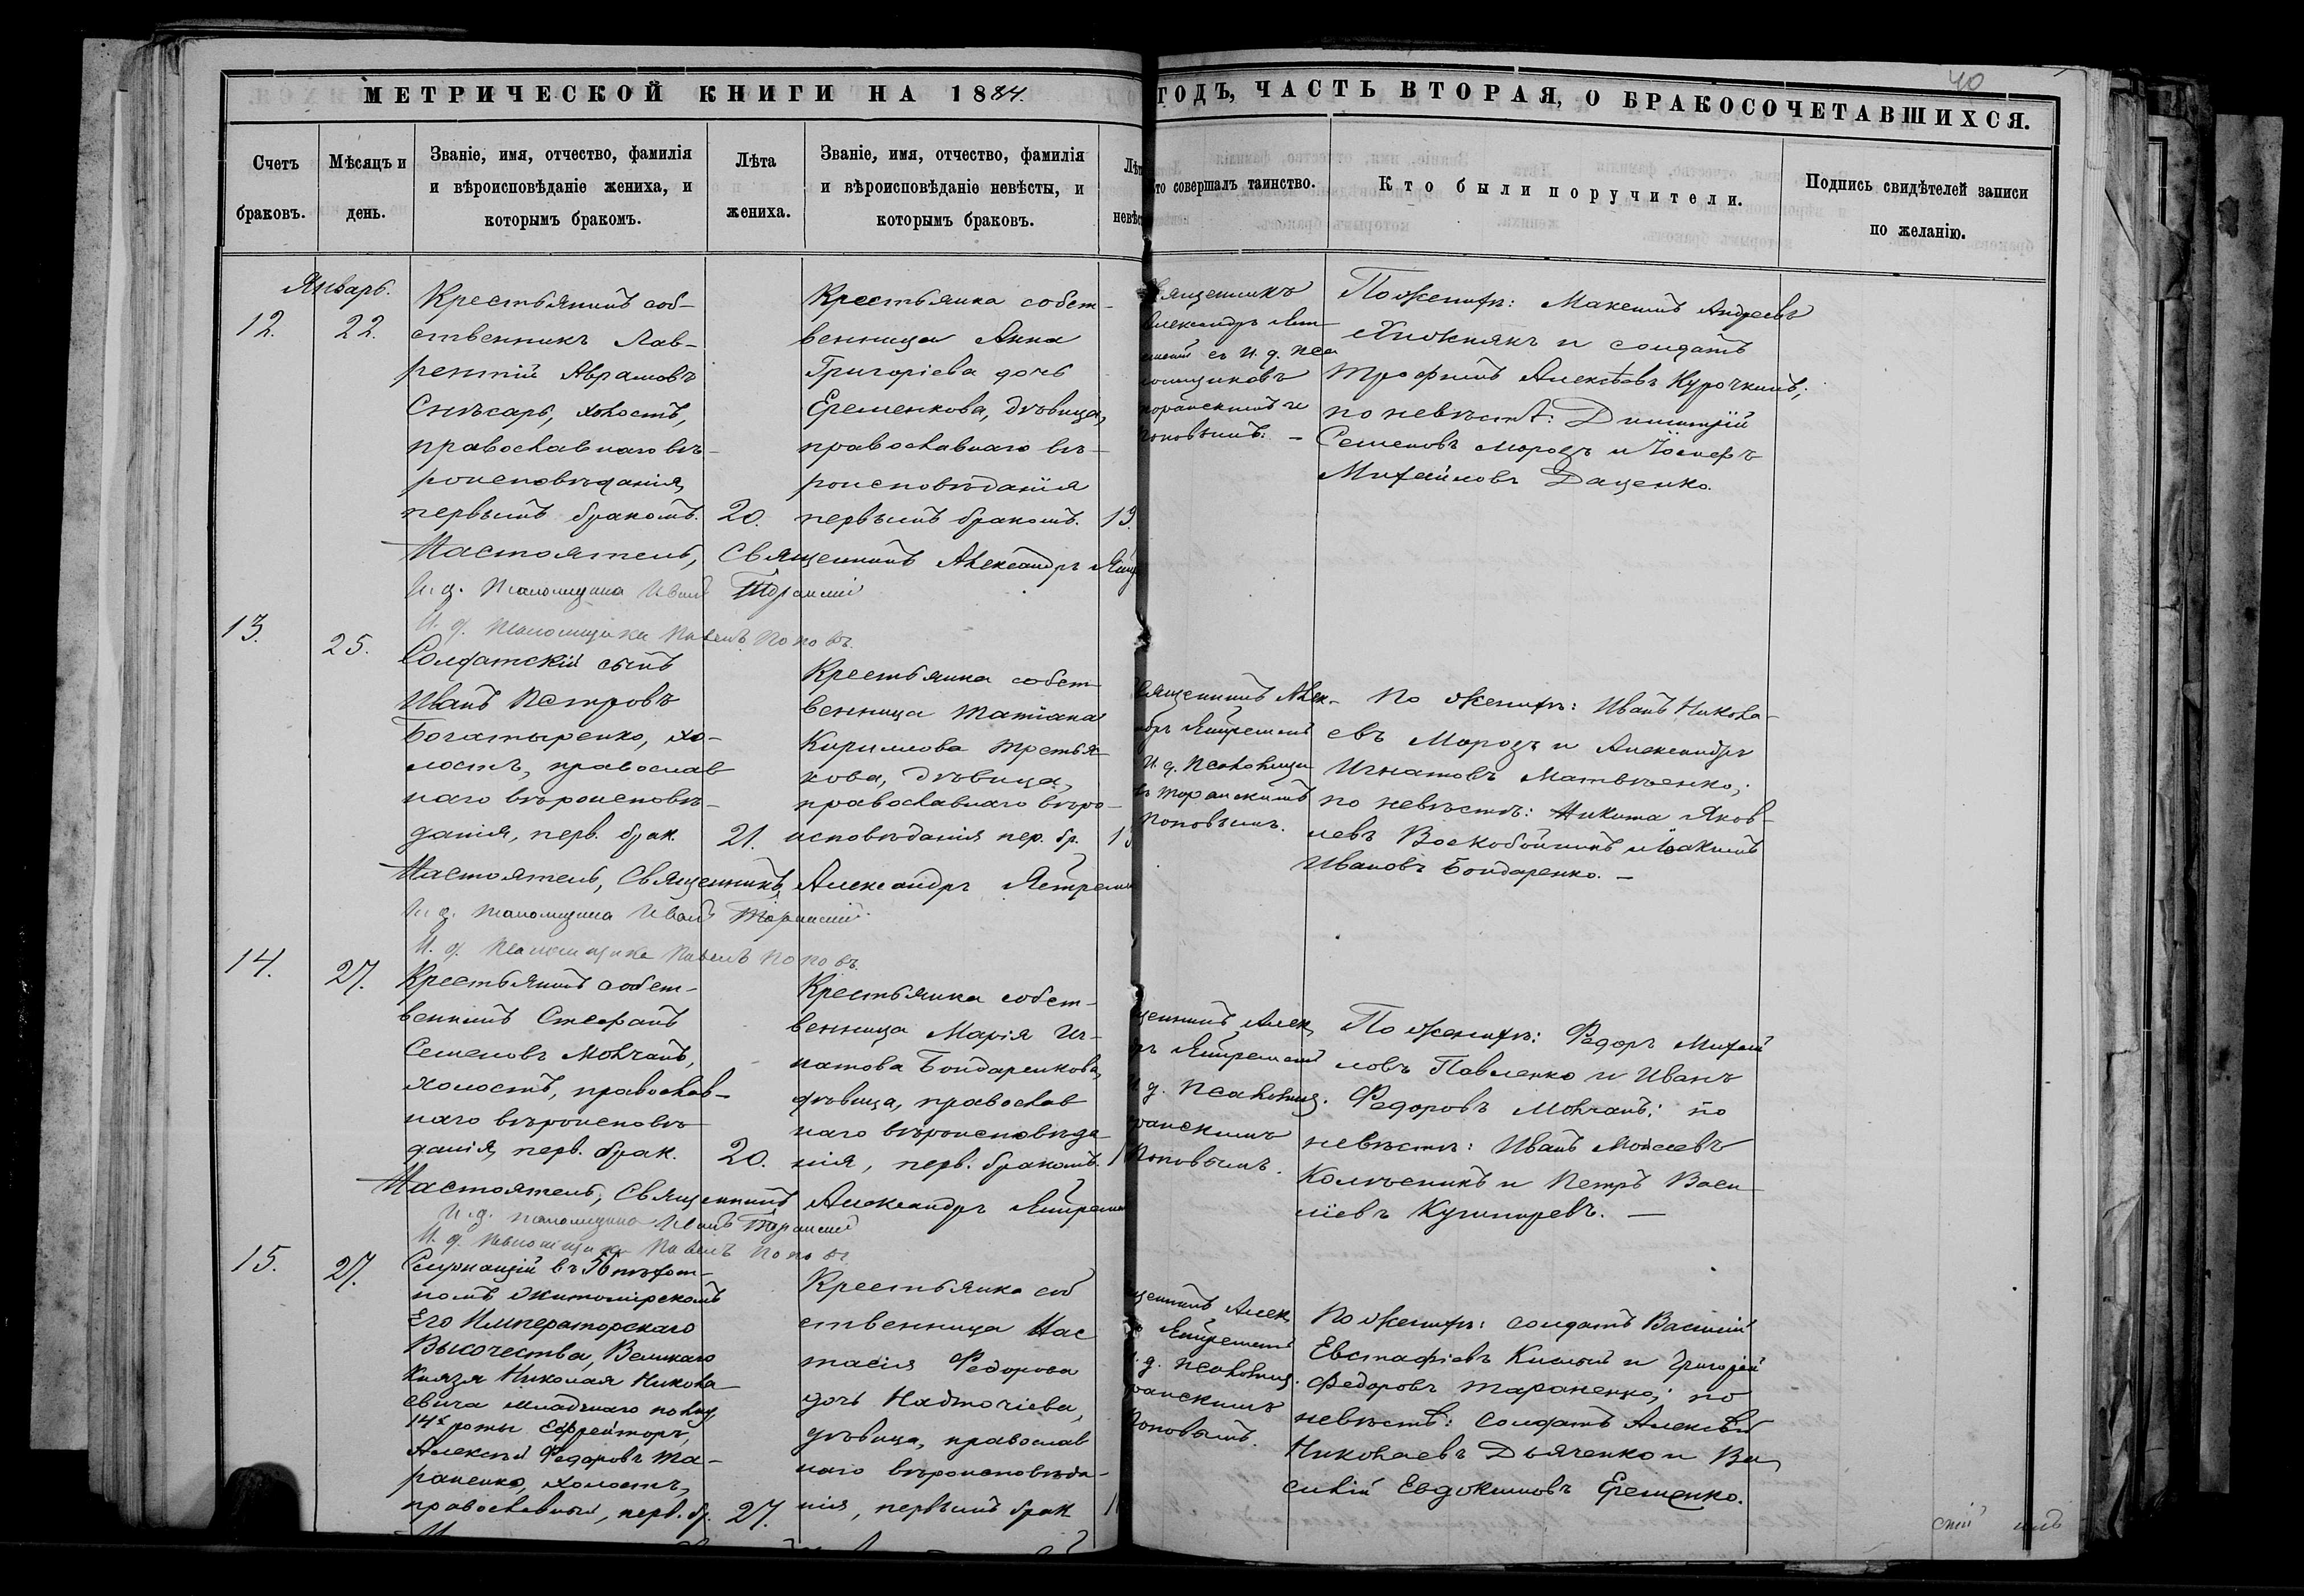 40
МЕТРИЧЕСКОЙ КНИГИ НА 1884.
ГОДЪ, ЧАСТЬ ВТОРАЯ, О БРАКОСОЧЕТАВШИХСЯ.
Счетъ браковъ.
Мѣсяцъ и день.
Званіе, имя, отчество, фамилія
и вѣроисповѣданіе жениха, и
которымъ бракомъ.
Лѣта
жениха.
Званіе, имя, отчество, фамилія
и вѣроисповѣданіе невѣсты, и
которымъ браковъ.
то совершалъ таинство.
Кто были поручители.
Подпись свидѣтелей записи
по желанію.
Январь.
12.
22.
Крестьянинъ соб-
ственникъ Лав-
рентій Аврамовъ
Снѣсарь, холостъ,
православнаго вѣ-
роисповѣданія,
первымъ бракомъ.
20.
Крестьянка собст-
венница Анна
Григоріева дочь
Еременкова, дѣвица,
православнаго вѣ-
роисповѣданія
первымъ бракомъ.
19.
Священникъ
Александръ
съ И. д. пса
ломщиковъ
Поповымъ. –
По женихѣ: Максимъ Андреевъ
и солдатъ
Трофимъ Алексѣевъ Курочкинъ;
по невѣстѣ: Димитрій
Семеновъ Морозъ и Іосифъ
Михайловъ Даценко.
Настоятель, Священникъ Александръ
И. д. псаломщика Иванъ
И. д. псаломщика Павелъ Поповъ.
13.
25.
Солдатскій сынъ
Иванъ Петровъ
Богатыренко, хо-
лостъ, православ
наго вѣроисповѣ-
данія, перв. брак.
21.
Крестьянка собст
венница Татіана
Кириллова Третья-
кова, дѣвица,
православнаго вѣро-
исповѣданія пер. бр.
Священникъ Алек-
И. д. псаломщи
Поповымъ.
По женихѣ: Иванъ Никола-
евъ Морозъ и Александръ
Игнатовъ Матвѣенко;
по невѣстѣ: Никита Яков-
левъ Воскобойникъ и Іоакимъ
Ивановъ Бондаренко. –
Настоятель, Священникъ Александръ
И. д. псаломщика Иванъ
И. д. псаломщика Павелъ Поповъ.
14.
27.
Крестьянинъ собст-
венникъ Стефанъ
Семеновъ Молчанъ,
холостъ, православ-
наго вѣроисповѣ
данія, перв. брак.
20.
Крестьянка собст-
венница Марія Иг-
натова Бондаренкова,
дѣвица, православ
наго вѣроисповѣда-
нія, перв. бракомъ.
щенникъ Алек
д. псаломщ.
Поповымъ.
По женихѣ: Федоръ Михай
ловъ Павленко и Иванъ
Федоровъ Молчанъ; по
невѣстѣ: Иванъ Моисеевъ
Колѣсникъ и Петръ Васи-
ліевъ –
Настоятель, Священникъ Александръ
И. д. псаломщика Иванъ
И. д. псаломщика Павелъ Поповъ
15.
27.
Служащій въ 56 пѣхот-
номъ Житомирскомъ
Его Императорскаго
Высочества, Великаго
Князя Николая Никола-
евича младшаго полку
14й роты Ефрейторъ
Алексѣй Федоровъ Та-
раненко, холостъ,
православный, перв. бр.
27.
Крестьянка соб
ственница Нас
тасія Федорова
дочь Надточіева,
дѣвица, православ
наго вѣроисповѣда-
нія, первымъ брак
щенникъ Алек
д. псаломщ.
Поповымъ.
По женихѣ: солдатъ Василій
Евстафіевъ Кислый и Григорій
Федоровъ Тараненко; по
невѣстѣ: солдатъ Алексѣй
Николаевъ Дьяченко и Ва
силій Евдокимовъ Еременко.